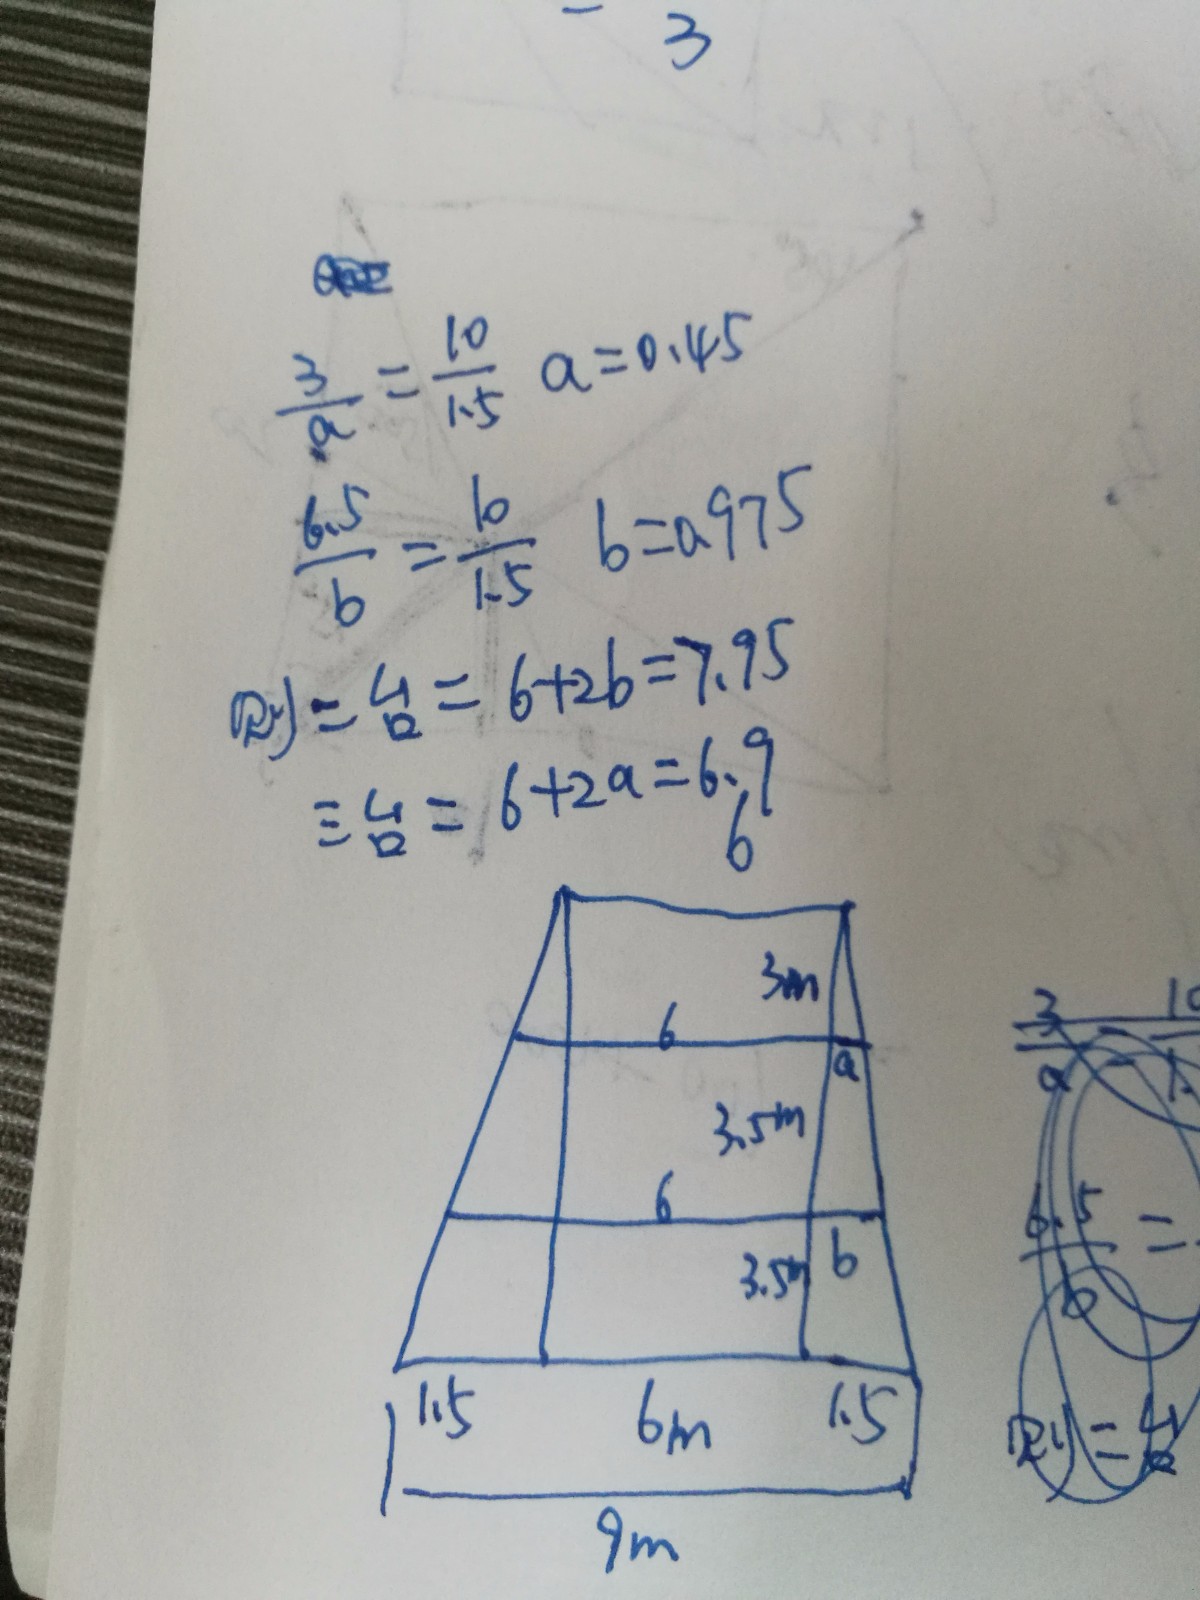 3
3/a = 10/1.5 a=0.45
6.5/b = 10/1.5 b=0.975
则二号=6+2b=7.95
三号=6+2a=6.9
6
3m
6
a
3.5m
6
3.5m b
1.5 6m 1.5
9m
3/a 10/1.
6.5/b =
则二号